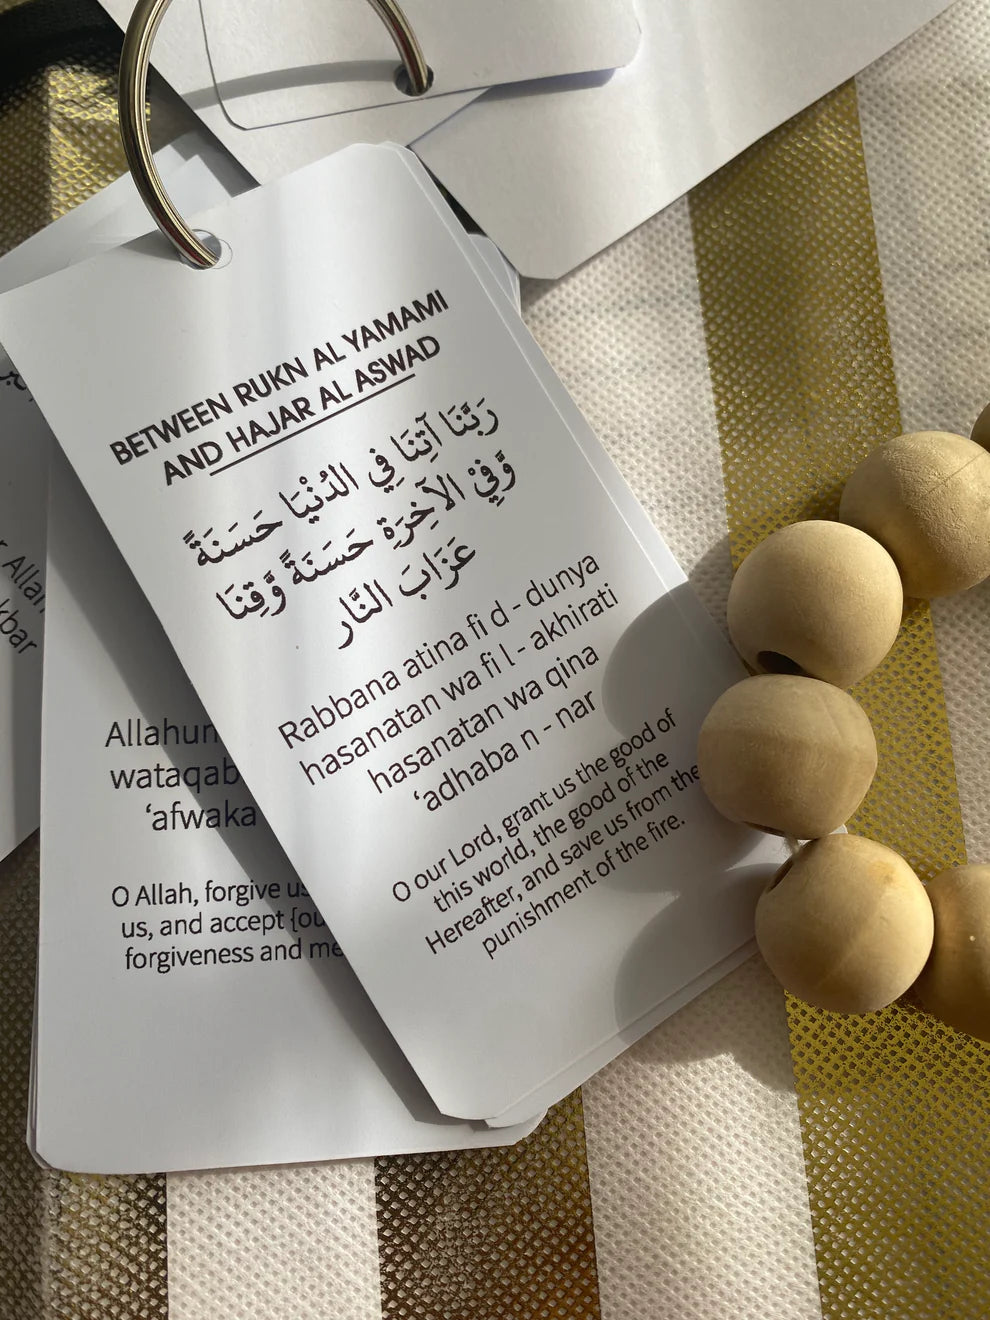 BETWEEN RUKN AL YAMAMI
AND HAJAR AL ASWAD
رَبَّنَا آتِنَا فِي الدُنْيَا حَسَنَةً
وَّفِيْ الآخِرَةِ حَسَنَةً وَّقِنَا
عَزَابَ النَّار
Rabbana atina fi d - dunya
hasanatan wa fi l - akhirati
hasanatan wa qina
‘adhaba n - nar
O our Lord, grant us the good of
this world, the good of the
Hereafter, and save us from the
punishment of the fire.
Allahum
wataqab
‘afwaka
O Allah, forgive us
us, and accept {ou
forgiveness and me
r Allah
kbar